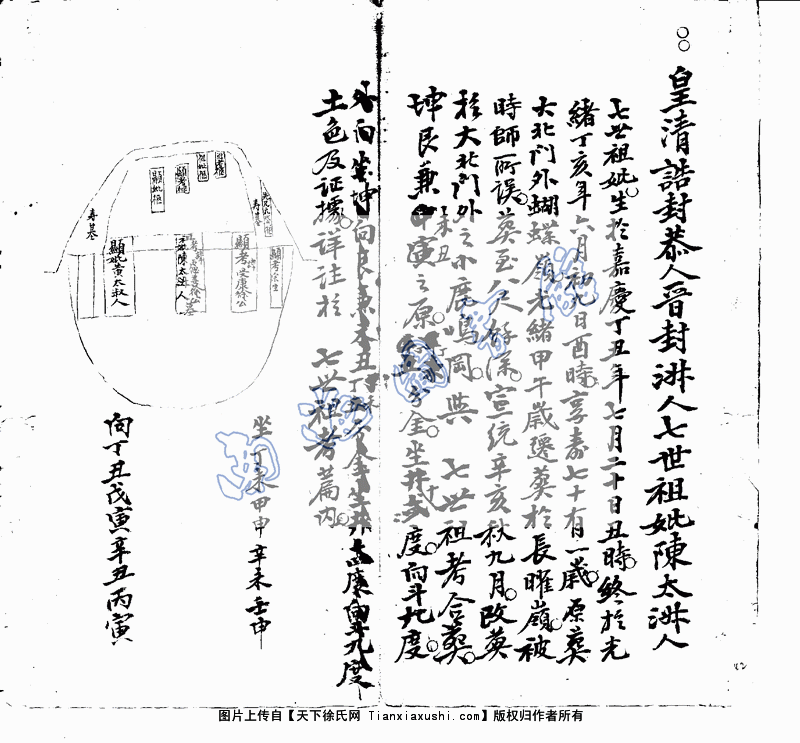 皇清誥封恭人晉封淋人七世祖妣陳太淋人
七世祖妣生於嘉慶丁丑年七月二十日丑時終於光
緒丁亥年六月初九日酉時享壽七十有一歲原葬
大北門外蝴蝶嶺光緒甲午歲遷葬於長曜嶺被
時師所誤葬至八尺餘深宣統辛亥秋九月改葬
於大北門外之小鹿鳴岡與七世祖考合葬
坤艮兼申寅之原 分金坐井 度向斗九度
外向坐坤向艮兼未丑
土色及証據詳注於七世祖考篇內
坐丁未甲申辛未壬申
向丁丑戊寅辛丑丙寅
顯妣
顯考
顯妣黃太淑人
陳太淋人
顯考
顯考
图片上传自【天下徐氏网 Tianxiaxushi.com】版权归作者所有